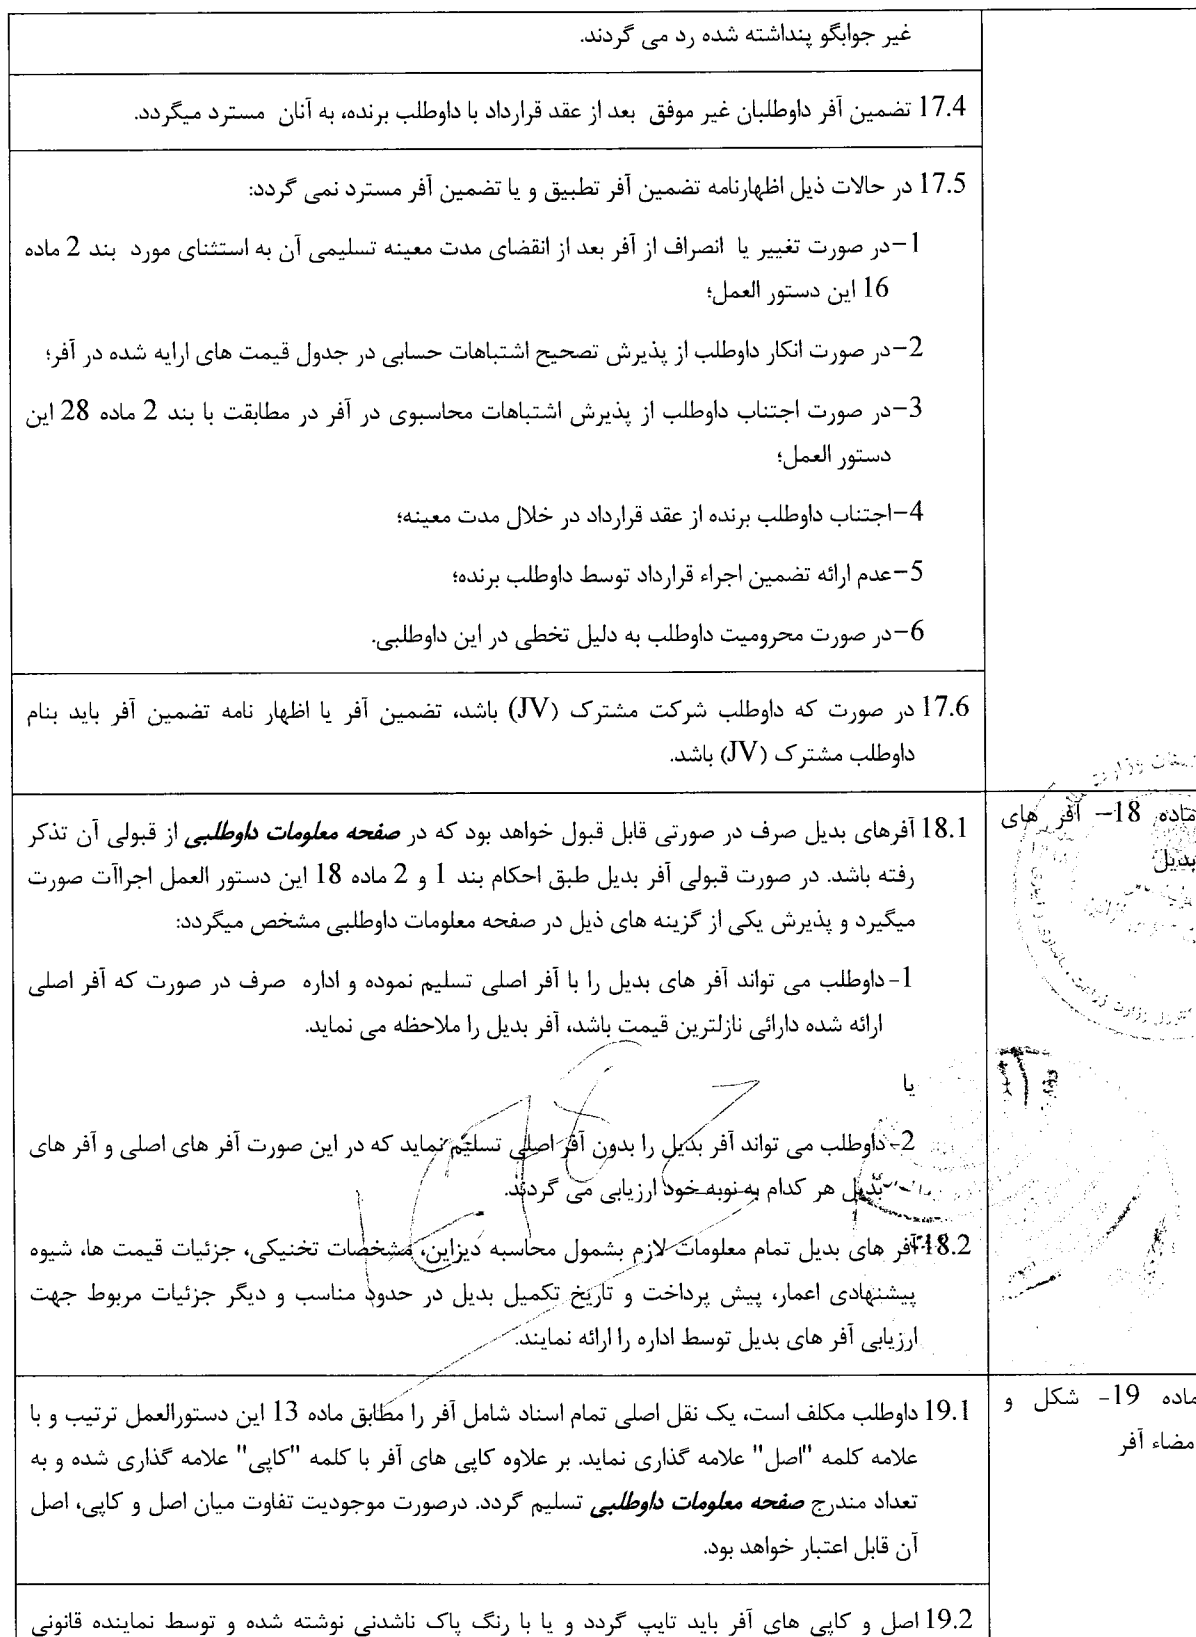 غیر جوابگو پنداشته شده رد می گردند.
17.4 تضمین آفر داوطلبان غیر موفق بعد از عقد قرارداد با داوطلب برنده، به آنان مسترد میگردد.
17.5 در حالات ذیل اظهارنامه تضمین آفر تطبیق و یا تضمین آفر مسترد نمی گردد:
1- در صورت تغییر یا انصراف از آفر بعد از انقضای مدت معینه تسلیمی آن به استثنای مورد بند 2 ماده
16 این دستور العمل؛
2- در صورت انکار داوطلب از پذیرش تصحیح اشتباهات حسابی در جدول قیمت های ارایه شده در آفر؛
3- در صورت اجتناب داوطلب از پذیرش اشتباهات محاسبوی در آفر در مطابقت با بند 2 ماده 28 این
دستور العمل؛
4- اجتناب داوطلب برنده از عقد قرارداد در خلال مدت معینه؛
5- عدم ارائه تضمین اجراء قرارداد توسط داوطلب برنده؛
6- در صورت محرومیت داوطلب به دلیل تخطی در این داوطلبی.
17.6 در صورت که داوطلب شرکت مشترک (JV) باشد، تضمین آفر یا اظهار نامه تضمین آفر باید بنام
داوطلب مشترک (JV) باشد.
ماده 18- آفر های
بدیل
18.1 آفرهای بدیل صرف در صورتی قابل قبول خواهد بود که در صفحه معلومات داوطلبی از قبولی آن تذکر
رفته باشد. در صورت قبولی آفر بدیل طبق احکام بند 1 و 2 ماده 18 این دستور العمل اجراآت صورت
میگیرد و پذیرش یکی از گزینه های ذیل در صفحه معلومات داوطلبی مشخص میگردد:
1- داوطلب می تواند آفر های بدیل را با آفر اصلی تسلیم نموده و اداره صرف در صورت که آفر اصلی
ارائه شده دارائی نازلترین قیمت باشد، آفر بدیل را ملاحظه می نماید.
یا
2- داوطلب می تواند آفر بدیل را بدون آفر اصلی تسلیم نماید که در این صورت آفر های اصلی و آفر های
بدیل هر کدام به نوبه خود ارزیابی می گردند.
18.2 آفر های بدیل تمام معلومات لازم بشمول محاسبه دیزاین، مشخصات تخنیکی، جزئیات قیمت ها، شیوه
پیشنهادی اعمار، پیش پرداخت و تاریخ تکمیل بدیل در حدود مناسب و دیگر جزئیات مربوط جهت
ارزیابی آفر های بدیل توسط اداره را ارائه نمایند.
ماده 19- شکل و
مضاء آفر
19.1 داوطلب مکلف است، یک نقل اصلی تمام اسناد شامل آفر را مطابق ماده 13 این دستورالعمل ترتیب و با
علامه کلمه "اصل" علامه گذاری نماید. بر علاوه کاپی های آفر با کلمه "کاپی" علامه گذاری شده و به
تعداد مندرج صفحه معلومات داوطلبی تسلیم گردد. درصورت موجودیت تفاوت میان اصل و کاپی، اصل
آن قابل اعتبار خواهد بود.
19.2 اصل و کاپی های آفر باید تایپ گردد و یا با رنگ پاک ناشدنی نوشته شده و توسط نماینده قانونی